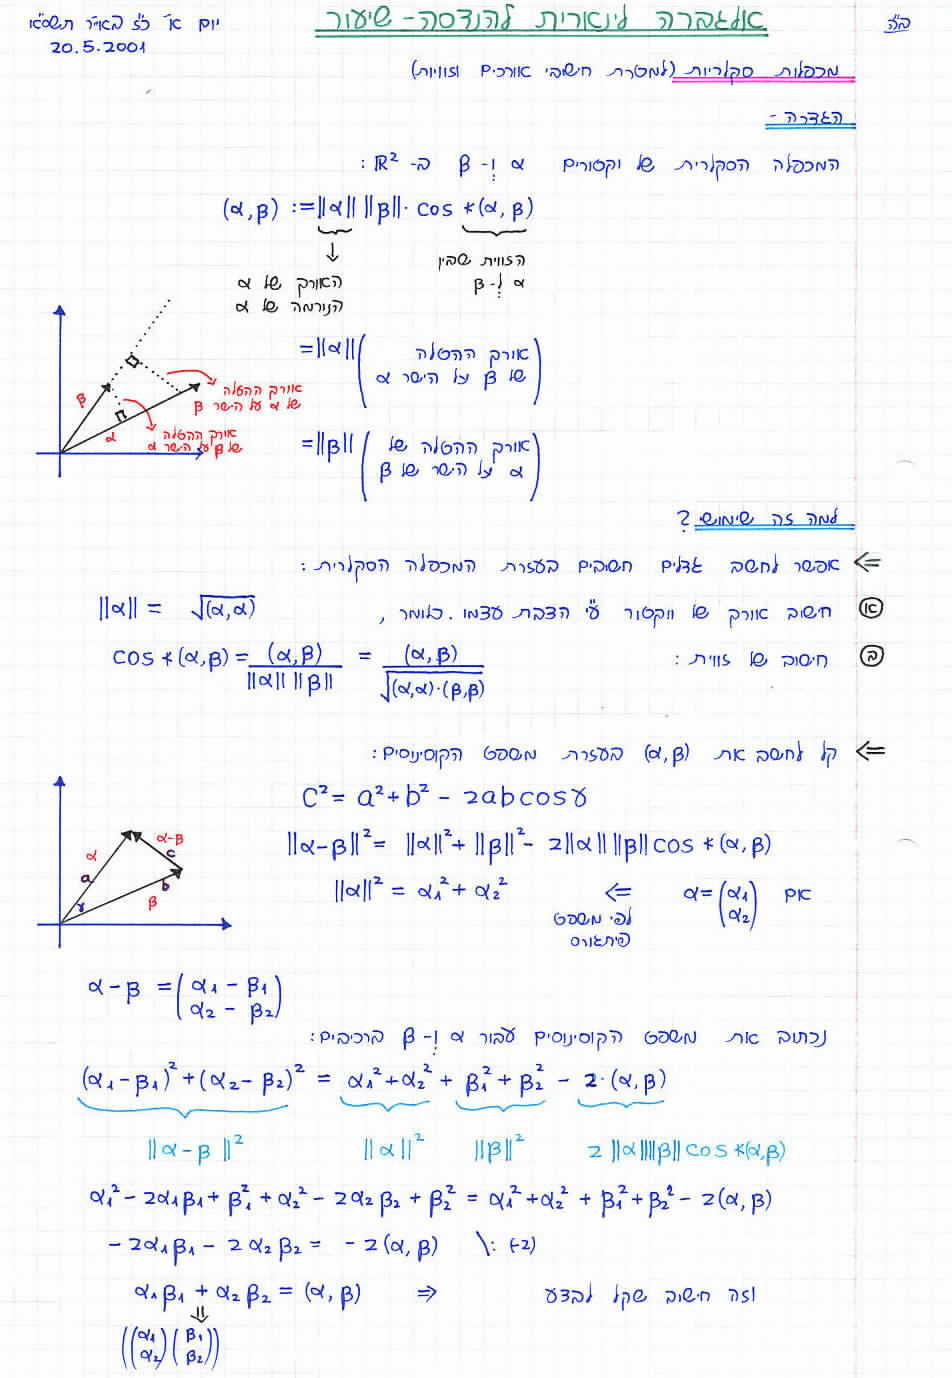 ב"ה
אלגברה לינארית להנדסה - שיעור
יום א' כ"ז באייר תשס"א
20.5.2001
מכפלות סקלריות (למטרת חישובי אורכים וזוויות)
הגדרה -
המכפלה הסקלרית של וקטורים α ו- β ב- ℝ² :
(α,β) := ||α|| ||β|| · cos ∢(α,β)
הזווית שבין
α ל- β
האורך של α
הנורמה של α
= ||α|| (אורך ההטלה של β על הישר α)
= ||β|| (אורך ההטלה של α על הישר של β)
β
α
אורך ההטלה
של α על הישר β
אורך ההטלה
של β על הישר α
למה זה שימושי?
⇐ אפשר לחשב גדלים חשובים בעזרת המכפלה הסקלרית :
א) חישוב אורך של ווקטור ע"י הצבת עצמו. כלומר, ||α|| = √(α,α)
ב) חישוב של זווית : cos ∢(α,β) = (α,β) / ||α|| ||β|| = (α,β) / √(α,α)·(β,β)
⇐ קל לחשב את (α,β) בעזרת משפט הקוסינוסים:
c² = a² + b² - 2ab cos γ
||α-β||² = ||α||² + ||β||² - 2||α|| ||β|| cos ∢(α,β)
אם α = (α₁ α₂) ⇐ ||α||² = α₁² + α₂²
לפי משפט
פיתגורס
α
a
α-β
c
b
β
γ
α - β = (α₁ - β₁ α₂ - β₂)
נכתוב את משפט הקוסינוסים עבור α ו- β ברכיבים:
(α₁-β₁)² + (α₂-β₂)² = α₁² + α₂² + β₁² + β₂² - 2·(α,β)
||α-β||² ||α||² ||β||² 2||α||||β|| cos ∢(α,β)
α₁² - 2α₁β₁ + β₁² + α₂² - 2α₂β₂ + β₂² = α₁² + α₂² + β₁² + β₂² - 2(α,β)
-2α₁β₁ - 2α₂β₂ = -2(α,β) \: (-2)
α₁β₁ + α₂β₂ = (α,β) ⇒ וזה חישוב שקל לבצע
⇓
((α₁ α₂)(β₁ β₂))